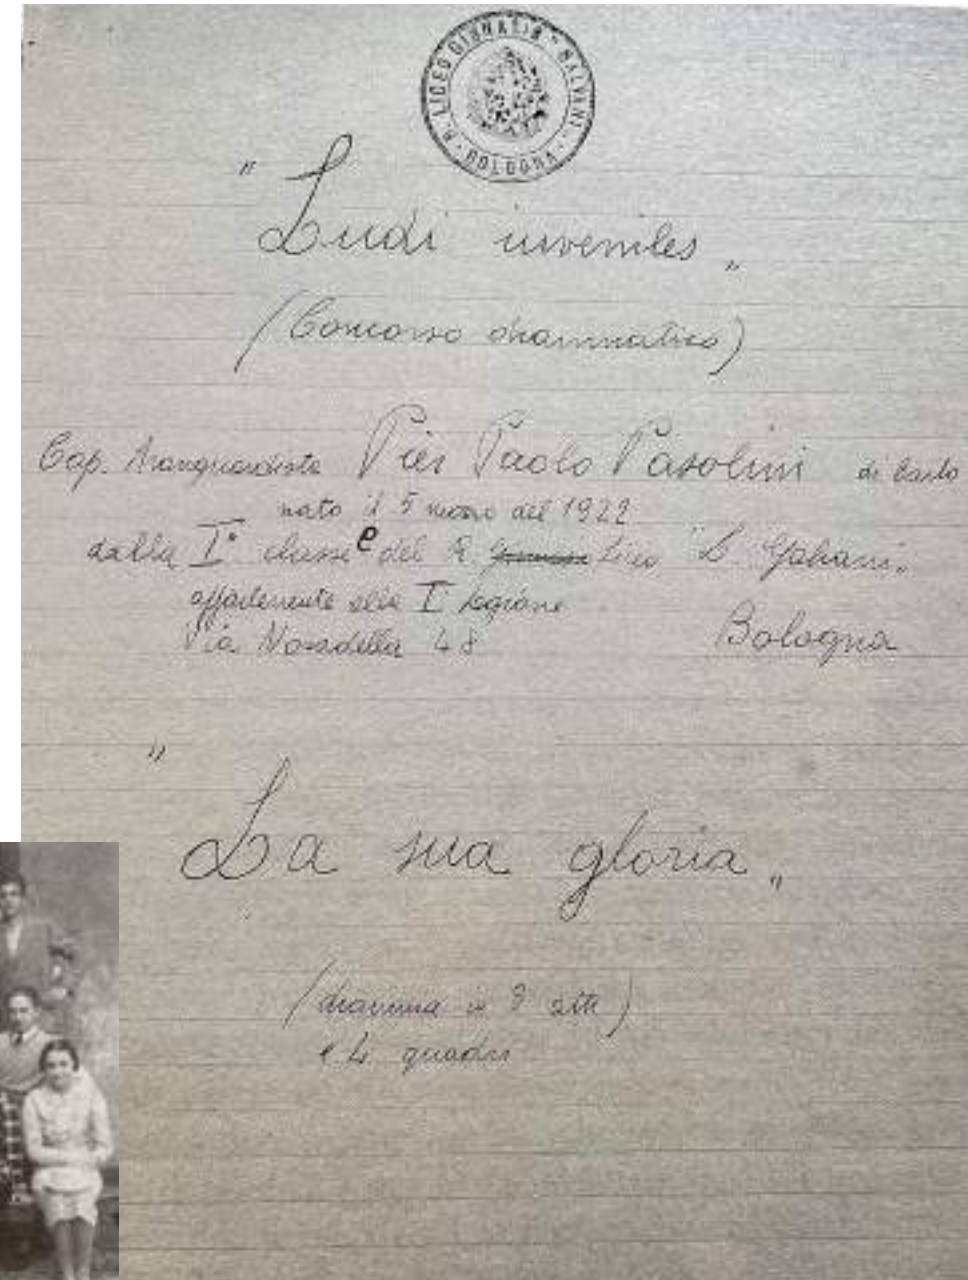 R. LICEO GINNASIO - GALVANI - BOLOGNA -
"Ludi iuveniles"
(Concorso drammatico)
Cap. Avanguardista Pier Paolo Pasolini di Carlo
nato il 5 marzo del 1922
dalla Iª classe e del R. Ginnasio Liceo "L. Galvani"
appartenente alla I Legione
Via Nosadella 48 Bologna
"La sua gloria"
(dramma in 3 atti)
e 4 quadri